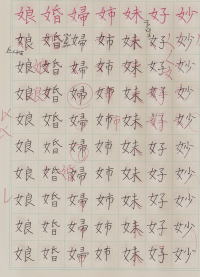 娘 婚 婦 姉 妹 好 妙
娘 婚 婦 姉 妹 好 妙
娘 婚 婦 姉 妹 好 妙
娘 婚 婦 姉 妹 好 妙
娘 婚 婦 姉 妹 好 妙
娘 婚 婦 姉 妹 好 妙
娘 婚 婦 姉 妹 好 妙
娘 婚 婦 姉 妹 好 妙
娘 婚 婦 姉 妹 好 妙
娘 婚 婦 姉 妹 好 妙